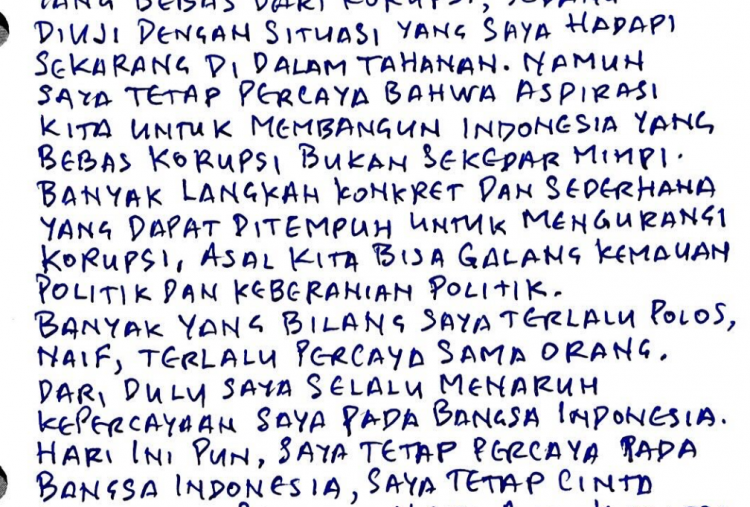 YANG BEBAS DARI KORUPSI, SEDANG
DIUJI DENGAN SITUASI YANG SAYA HADAPI
SEKARANG DI DALAM TAHANAN. NAMUN
SAYA TETAP PERCAYA BAHWA ASPIRASI
KITA UNTUK MEMBANGUN INDONESIA YANG
BEBAS KORUPSI BUKAN SEKEDAR MIMPI.
BANYAK LANGKAH KONKRET DAN SEDERHANA
YANG DAPAT DITEMPUH UNTUK MENGURANGI
KORUPSI, ASAL KITA BISA GALANG KEMAUAN
POLITIK DAN KEBERANIAN POLITIK.
BANYAK YANG BILANG SAYA TERLALU POLOS,
NAIF, TERLALU PERCAYA SAMA ORANG.
DARI DULU SAYA SELALU MENARUH
KEPERCAYAAN SAYA PADA BANGSA INDONESIA.
HARI INI PUN, SAYA TETAP PERCAYA PADA
BANGSA INDONESIA, SAYA TETAP CINTA